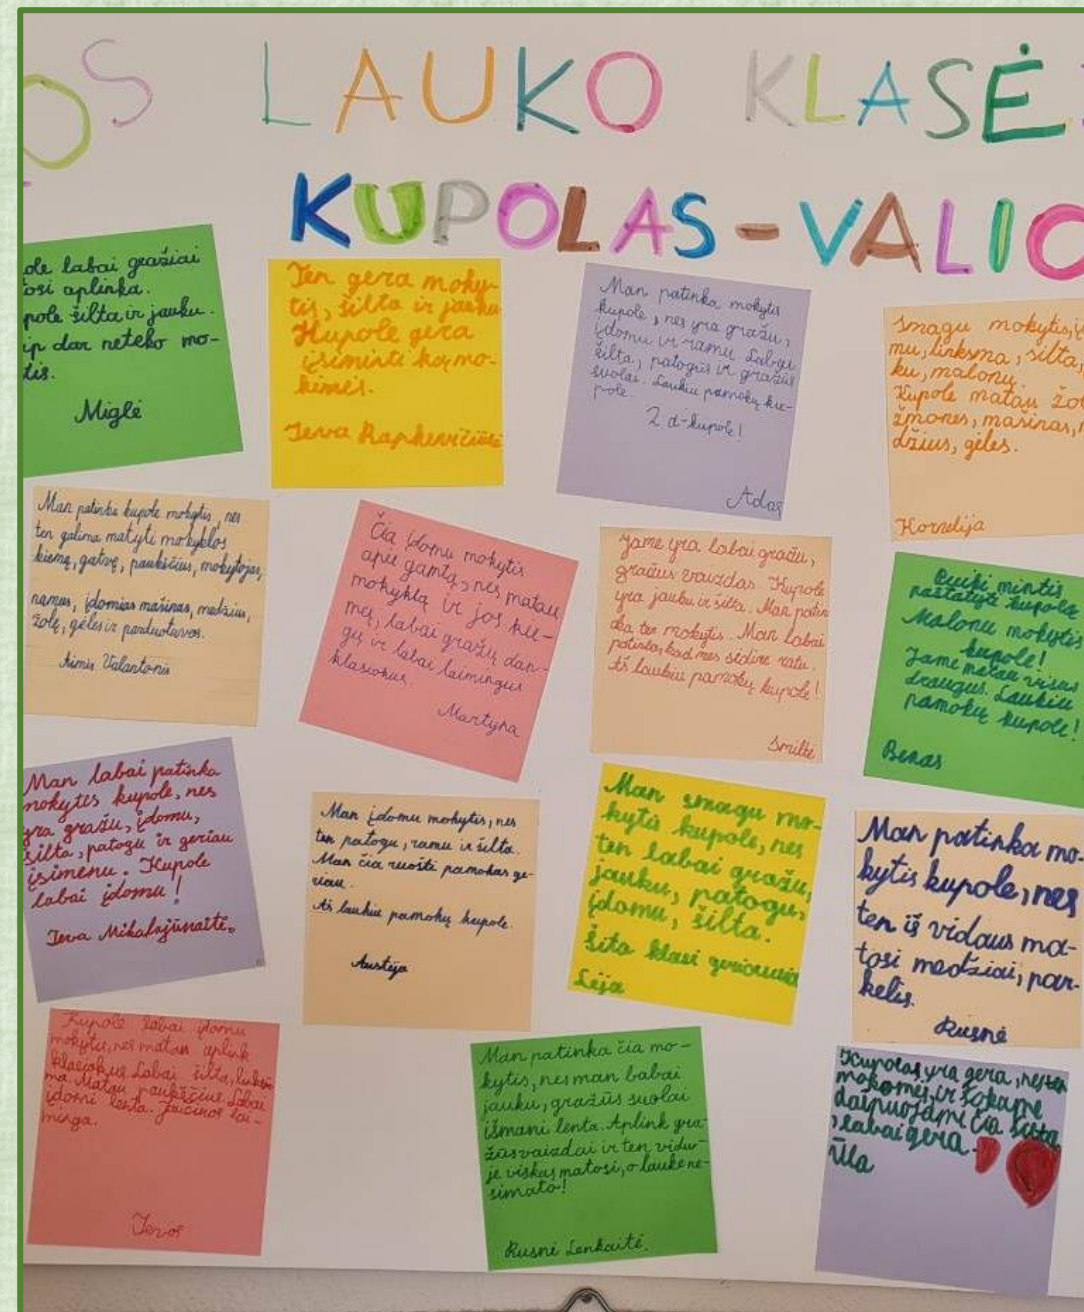 OS LAUKO KLASĖ
KUPOLAS-VALIO
ole labai gražiai
osi aplinka.
pole šilta ir jauku.
ip dar neteko mo-
tis.
Miglė
Ten gera moky-
tis, šilta ir jauku
Kupole gera
įsiminti ką mo-
kėmės.
Ieva
Man patinka mokytis
kupole, nes yra gražu,
įdomu ir ramu. Labai
šilta, patogūs ir gražūs
suolai. Laukiu pamokų ku-
pole.
2 d-kupole!
Adas
Smagu mokytis, į
mu, linksma, šilta,
ku, malonu.
Kupole matau žol
žmones, mašinas, m
džius, gėles.
Kornelija
Man patinka kupole mokytis, nes
ten galima matyti mokyklos
kiemą, gatvę, paukščius, mokytojas,
namus, įdomias mašinas, medžius,
žolę, gėles ir parduotuves.
Aimis Valantonis
Čia įdomu mokytis
apie gamtą, nes matau
mokyklą ir jos kie-
mą, labai gražų dan-
gų ir labai laimingus
klasiokus.
Martyna
Jame yra labai gražu,
gražus vaizdas. Kupole
yra jauku ir šilta. Man patin
ka ten mokytis. Man labai
patinka, kad mes sėdime ratu.
Aš laukiu pamokų kupole!
Smiltė
Puiki mintis
pastatyti kupolą
Malonu mokytis
kupole!
Jame matau visus
draugus. Laukiu
pamokų kupole!
Benas
Man labai patinka
mokytis kupole, nes
yra gražu, įdomu,
šilta, patogu ir geriau
įsimenu. Kupole
labai įdomu!
Ieva Mikalajūnaitė.
Man įdomu mokytis, nes
ten patogu, ramu ir šilta.
Man čia ruošti pamokas ge-
riau.
Aš laukiu pamokų kupole.
Austėja
Man smagu mo-
kytis kupole, nes
ten labai gražu,
jauku, patogu,
įdomu, šilta.
Šita klasė geriausia
Lėja
Man patinka mo-
kytis kupole, nes
ten iš vidaus ma-
tosi medžiai, par-
kelis.
Rusnė
Kupole labai įdomu
mokytis, nes matau aplink
klasiokus. Labai šilta, links
ma. Matau paukščius. Labai
įdomi lenta. Jaučiuos lai-
minga.
Ievos
Man patinka čia mo-
kytis, nes man babai
jauku, gražūs suolai
išmani lenta. Aplink gra-
žūs vaizdai ir ten vidu-
je viskas matosi, o lauke ne-
simato!
Rusnė Lenkaitė.
Kupolas yra gera, nes ten
mokomės, ir šokame
dainuojame čia šilta
, labai gera
Ūla